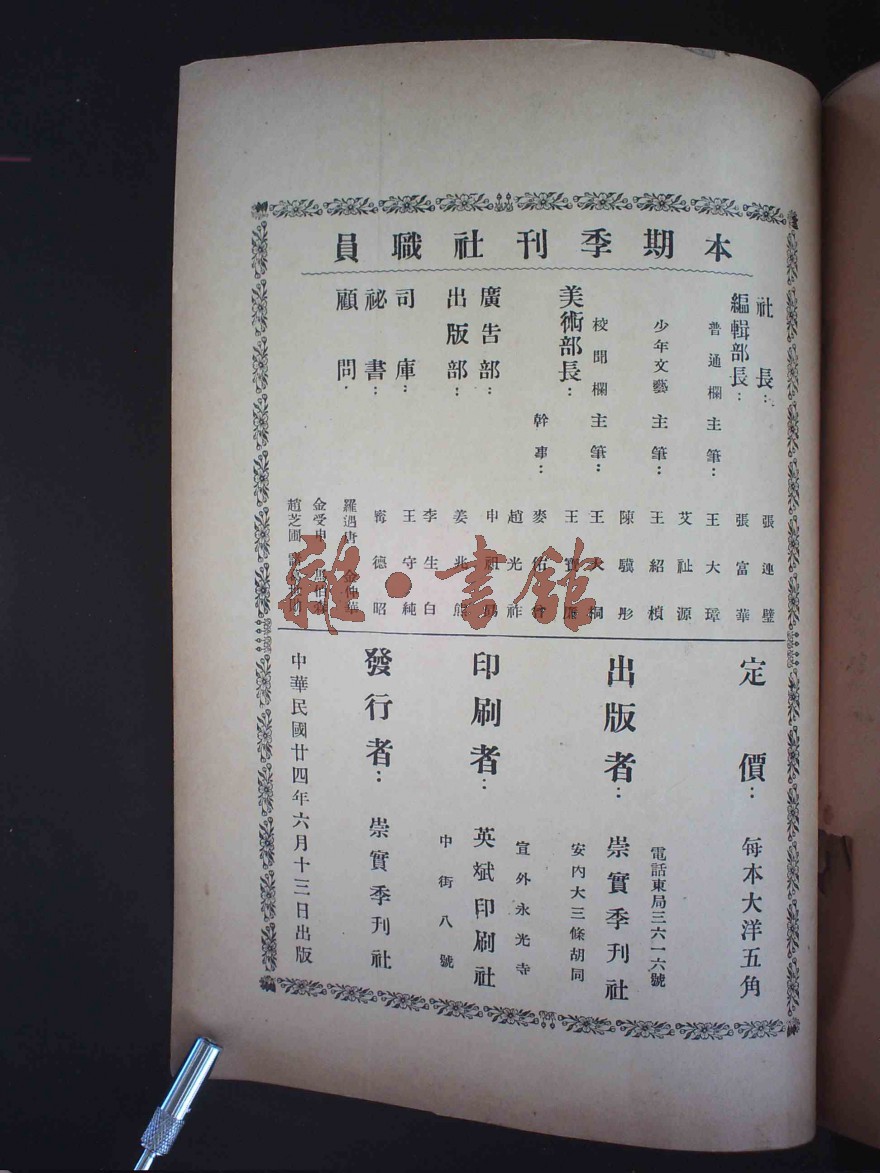 本期季刊社職員
社長：張連璧
編輯部長：張富華
普通欄主筆：王大璋
艾祉源
少年文藝主筆：王紹楨
陳驥彤
校聞欄主筆：王大桐
美術部長：王寶
幹事：麥佑曾
趙光祚
廣告部：申祖
出版部：姜兆熊
李生白
司庫：王守純
祕書：甯德昭
顧問：羅遇唐 金仲華
金受申
趙芝圃
定價：每本大洋五角
電話東局三六一六號
出版者：崇實季刊社
安內大三條胡同
宣外永光寺
印刷者：英斌印刷社
中街八號
發行者：崇實季刊社
中華民國廿四年六月十三日出版
雜·書館